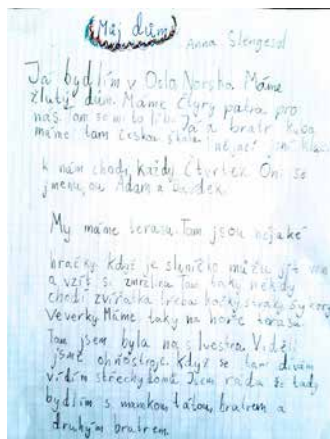 Můj dům
Anna Slengesol
Já bydlím v Oslo Norsha. Máme
žlutý dům. Máme čtyry patra pro
nás. Tam se mi to líbí. Já a bratr Kuba
máme tam českou školu nejací jsní kluci
k nám chodí, každý čtvrtek. Oni se
jmenu,ou Adam a
My máme terasu. Tam jsou nejaké
hračky. Když je sluníčko můžu jít ven
a vzít si zmrzlina. Tam taky někdy
chodí zvířátka třeba kočky, straky, sykory
veverky. Máme taky na hoře terasa.
Tam jsem byla na silvestra. Viděli
jsme ohňostroje. Když se tam dívám
vidím střechy domů. Jsem ráda že tady
bydlím s mamkou, tátou, bratrem a
druhým bratrem.